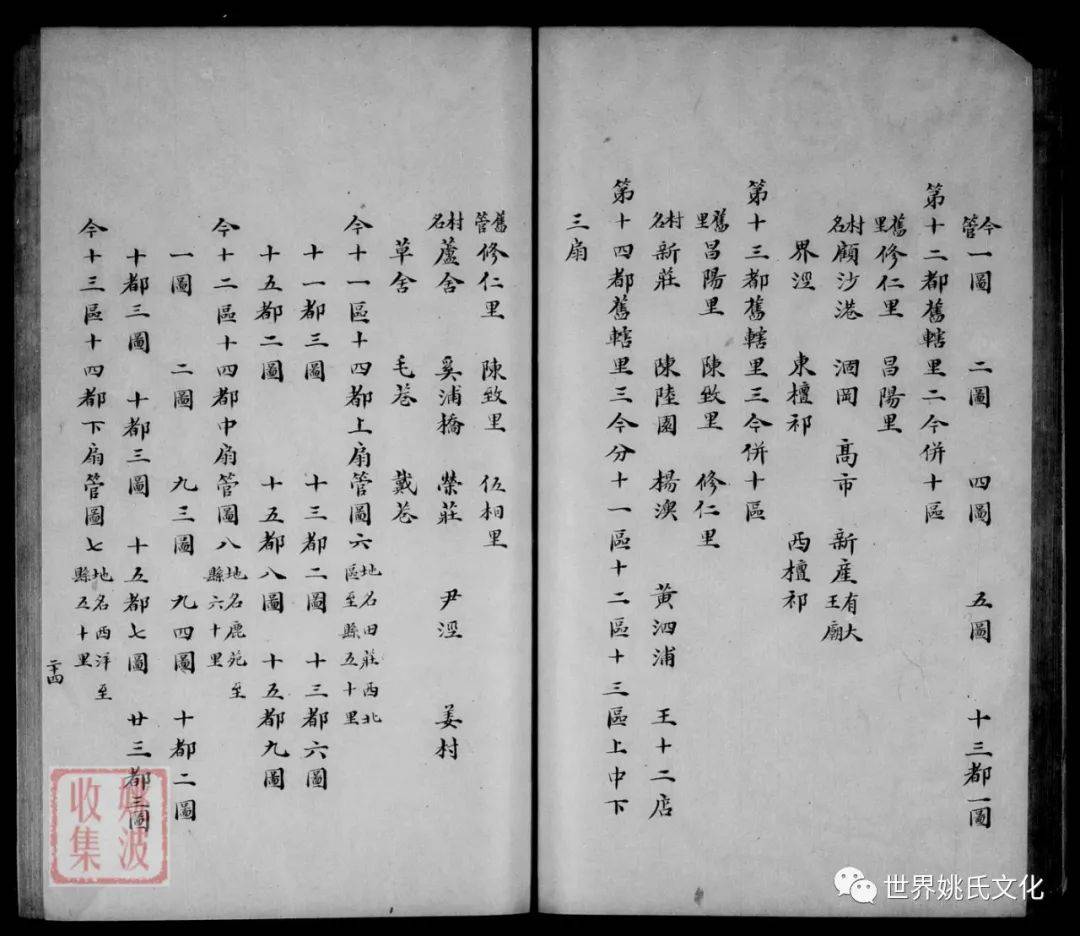 今管一圖 二圖 四圖 五圖 十三都一圖
第十二都舊轄里二今併十區
舊里修仁里 昌陽里
村名顧沙港 泗岡 高市 新産有大王廟
界涇 東檀祁 西檀祁
第十三都舊轄里三今併十區
舊里昌陽里 陳致里 修仁里
村名新莊 陳陸園 楊澳 黄泗浦 王十二店
第十四都舊轄里三今分十一區十二區十三區上中下
三扇
舊管修仁里 陳致里 伍相里
村名蘆舍 奚浦橋 榮莊 尹涇 姜村
草舍 毛巷 戴巷
今十一區十四都上扇管圖六地名田莊西北區至縣五十里
十一都三圖 十三都二圖 十三都六圖
十五都二圖 十五都八圖 十五都九圖
今十二區十四都中扇管圖八地名鹿苑至縣六十里
一圖 二圖 九三圖 九四圖 十都二圖
十都三圖 十都三圖 十五都七圖 廿三都三圖
今十三區十四都下扇管圖七地名西洋至縣五十里
二十四
姚波收集
世界姚氏文化